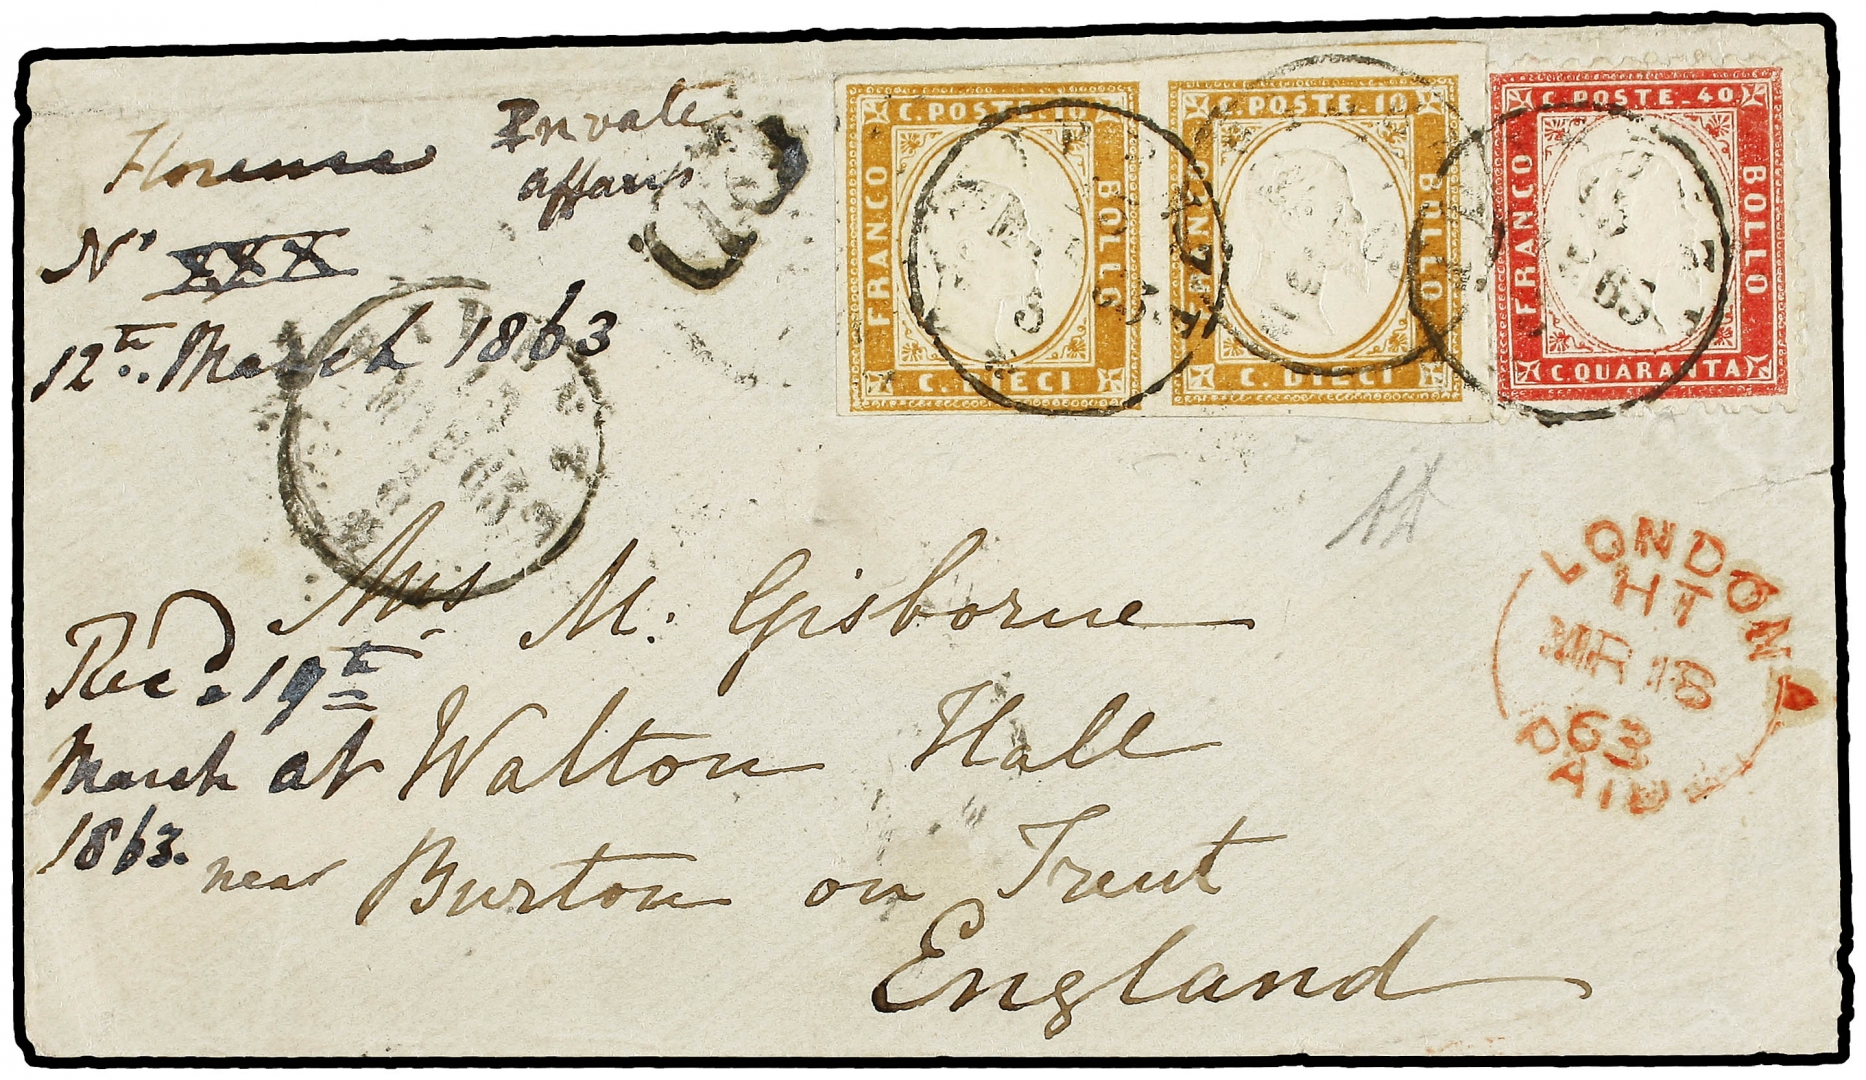 Florence
Private
affairs
N° XXX
12th. March 1863
PD
C. POSTE. 10
FRANCO
BOLLO
C. DIECI
C. POSTE. 10
BOLLO
C. DIECI
C. POSTE. 40
FRANCO
BOLLO
C. QUARANTA
63
Mrs M. Gisborne
Walton Hall
near Burton on Trent
England
Recd. 19th
March at
1863.
LONDON
HT
MR 18
63
PAID